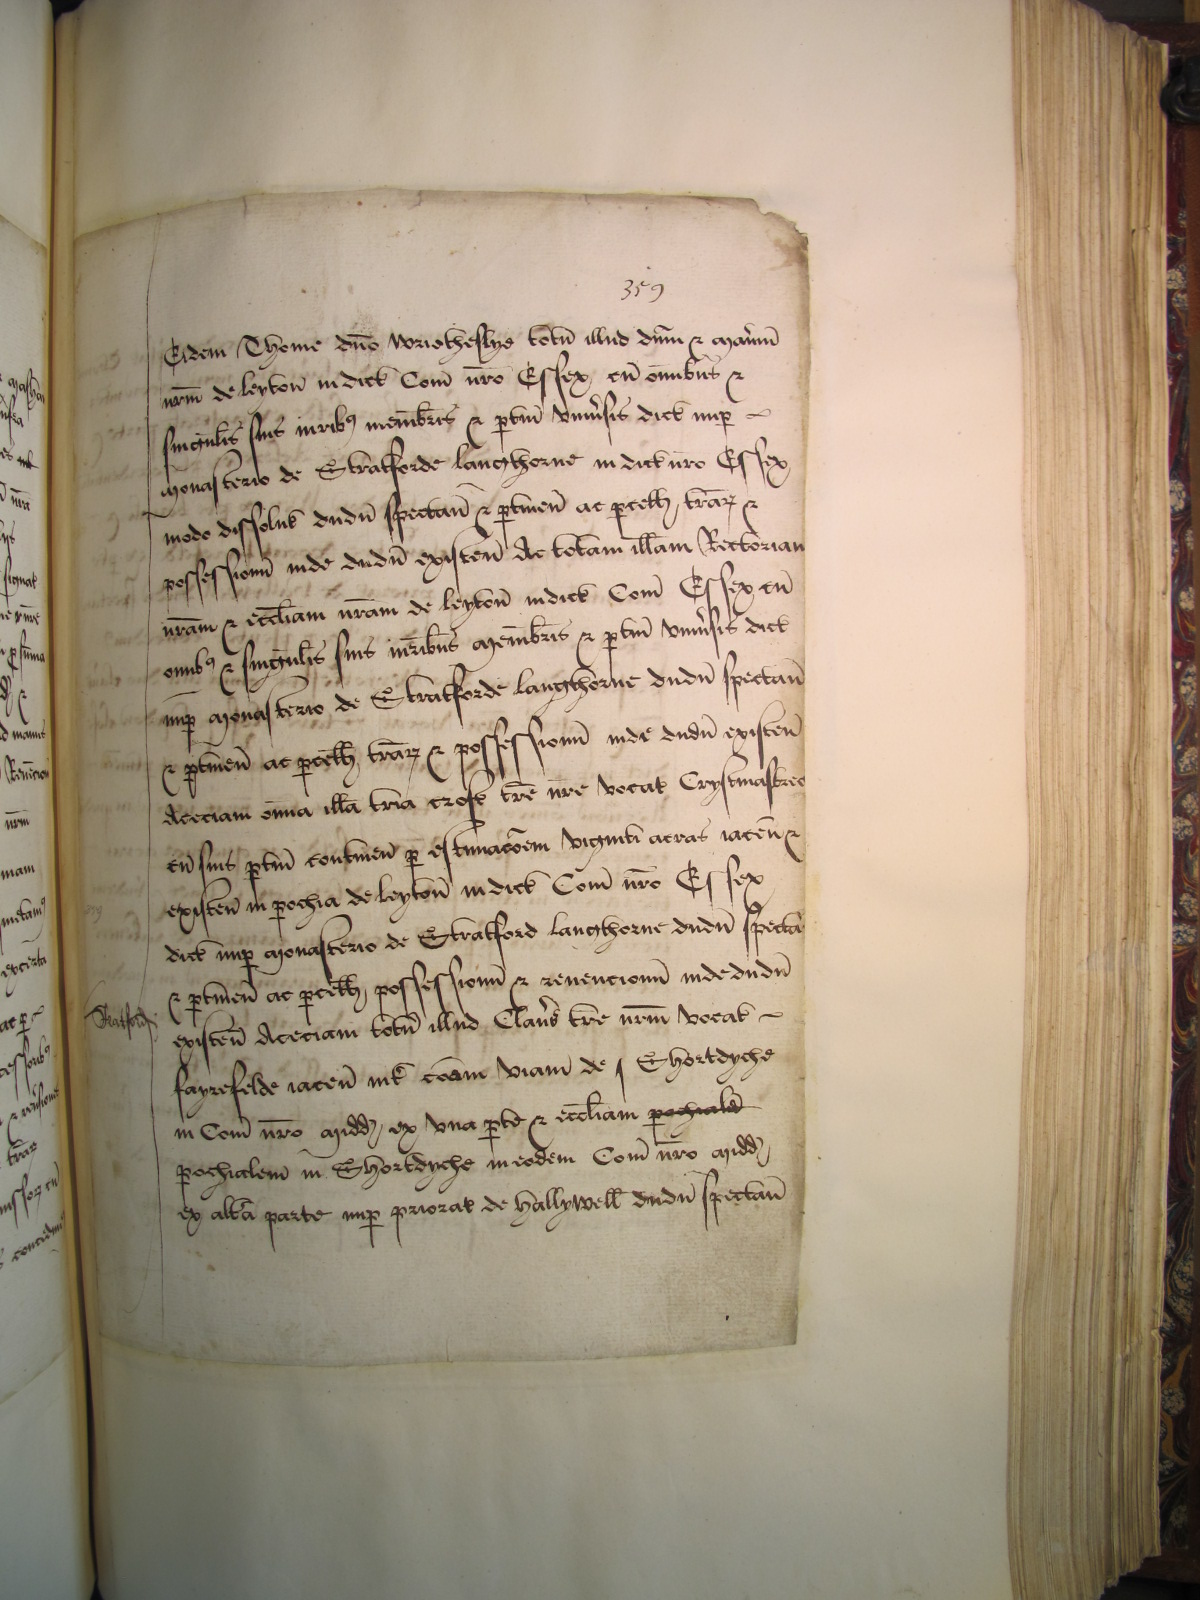 359
Eidem Thome dn̄o Wriothesley totū illud dn̄iū & man̄iū
nr̄m de leyton̄ in dict Com̄ nr̄o Essex cū om̄ibus &
singulis suis iuribꝰ membris & ptin̄ vniūsis dict nup
Monasterio de Stratforde langthorne in dict nr̄o Essex
modo dissolut dudū spectan̄ & ptinen̄ ac pcell trāꝝ &
possessionū inde dudū existen̄ Ac totam illam Rectoriam
nrām & eccliam nrām de leyton̄ in dict Com̄ Essex cū
om̄ibꝰ & singulis suis iuribus membris & ptin̄ vniūsis dict
nup Monasterio de Stratforde langthorne dudū spectan̄
& ptinen̄ ac pcell trāꝝ & possessionū inde dudū existen̄
Aceciam om̄ia illa tria croft trē nrē vocat Crystmastreo
cū suis ptin̄ continen̄ p estimacōem viginti acras iacen̄ &
existen̄ in pochia de leyton̄ in dict Com̄ nr̄o Essex
dict nup Monasterio de Stratford langthorne dudū specta
& ptinen̄ ac pcell possessionū & reuencionū inde dudū
Stratford
existen̄ Aceciam totū illud Claus̄ trē nr̄m vocat
fayrefelde iacen̄ int cōem viam de Shortdyche
in Com̄ nr̄o Midd ex vna pte & eccliam pochiale
pochialem in Shortdyche in eodem Com̄ nr̄o Midd
ex altā parte nup priorat de hallywell dudū spectan̄